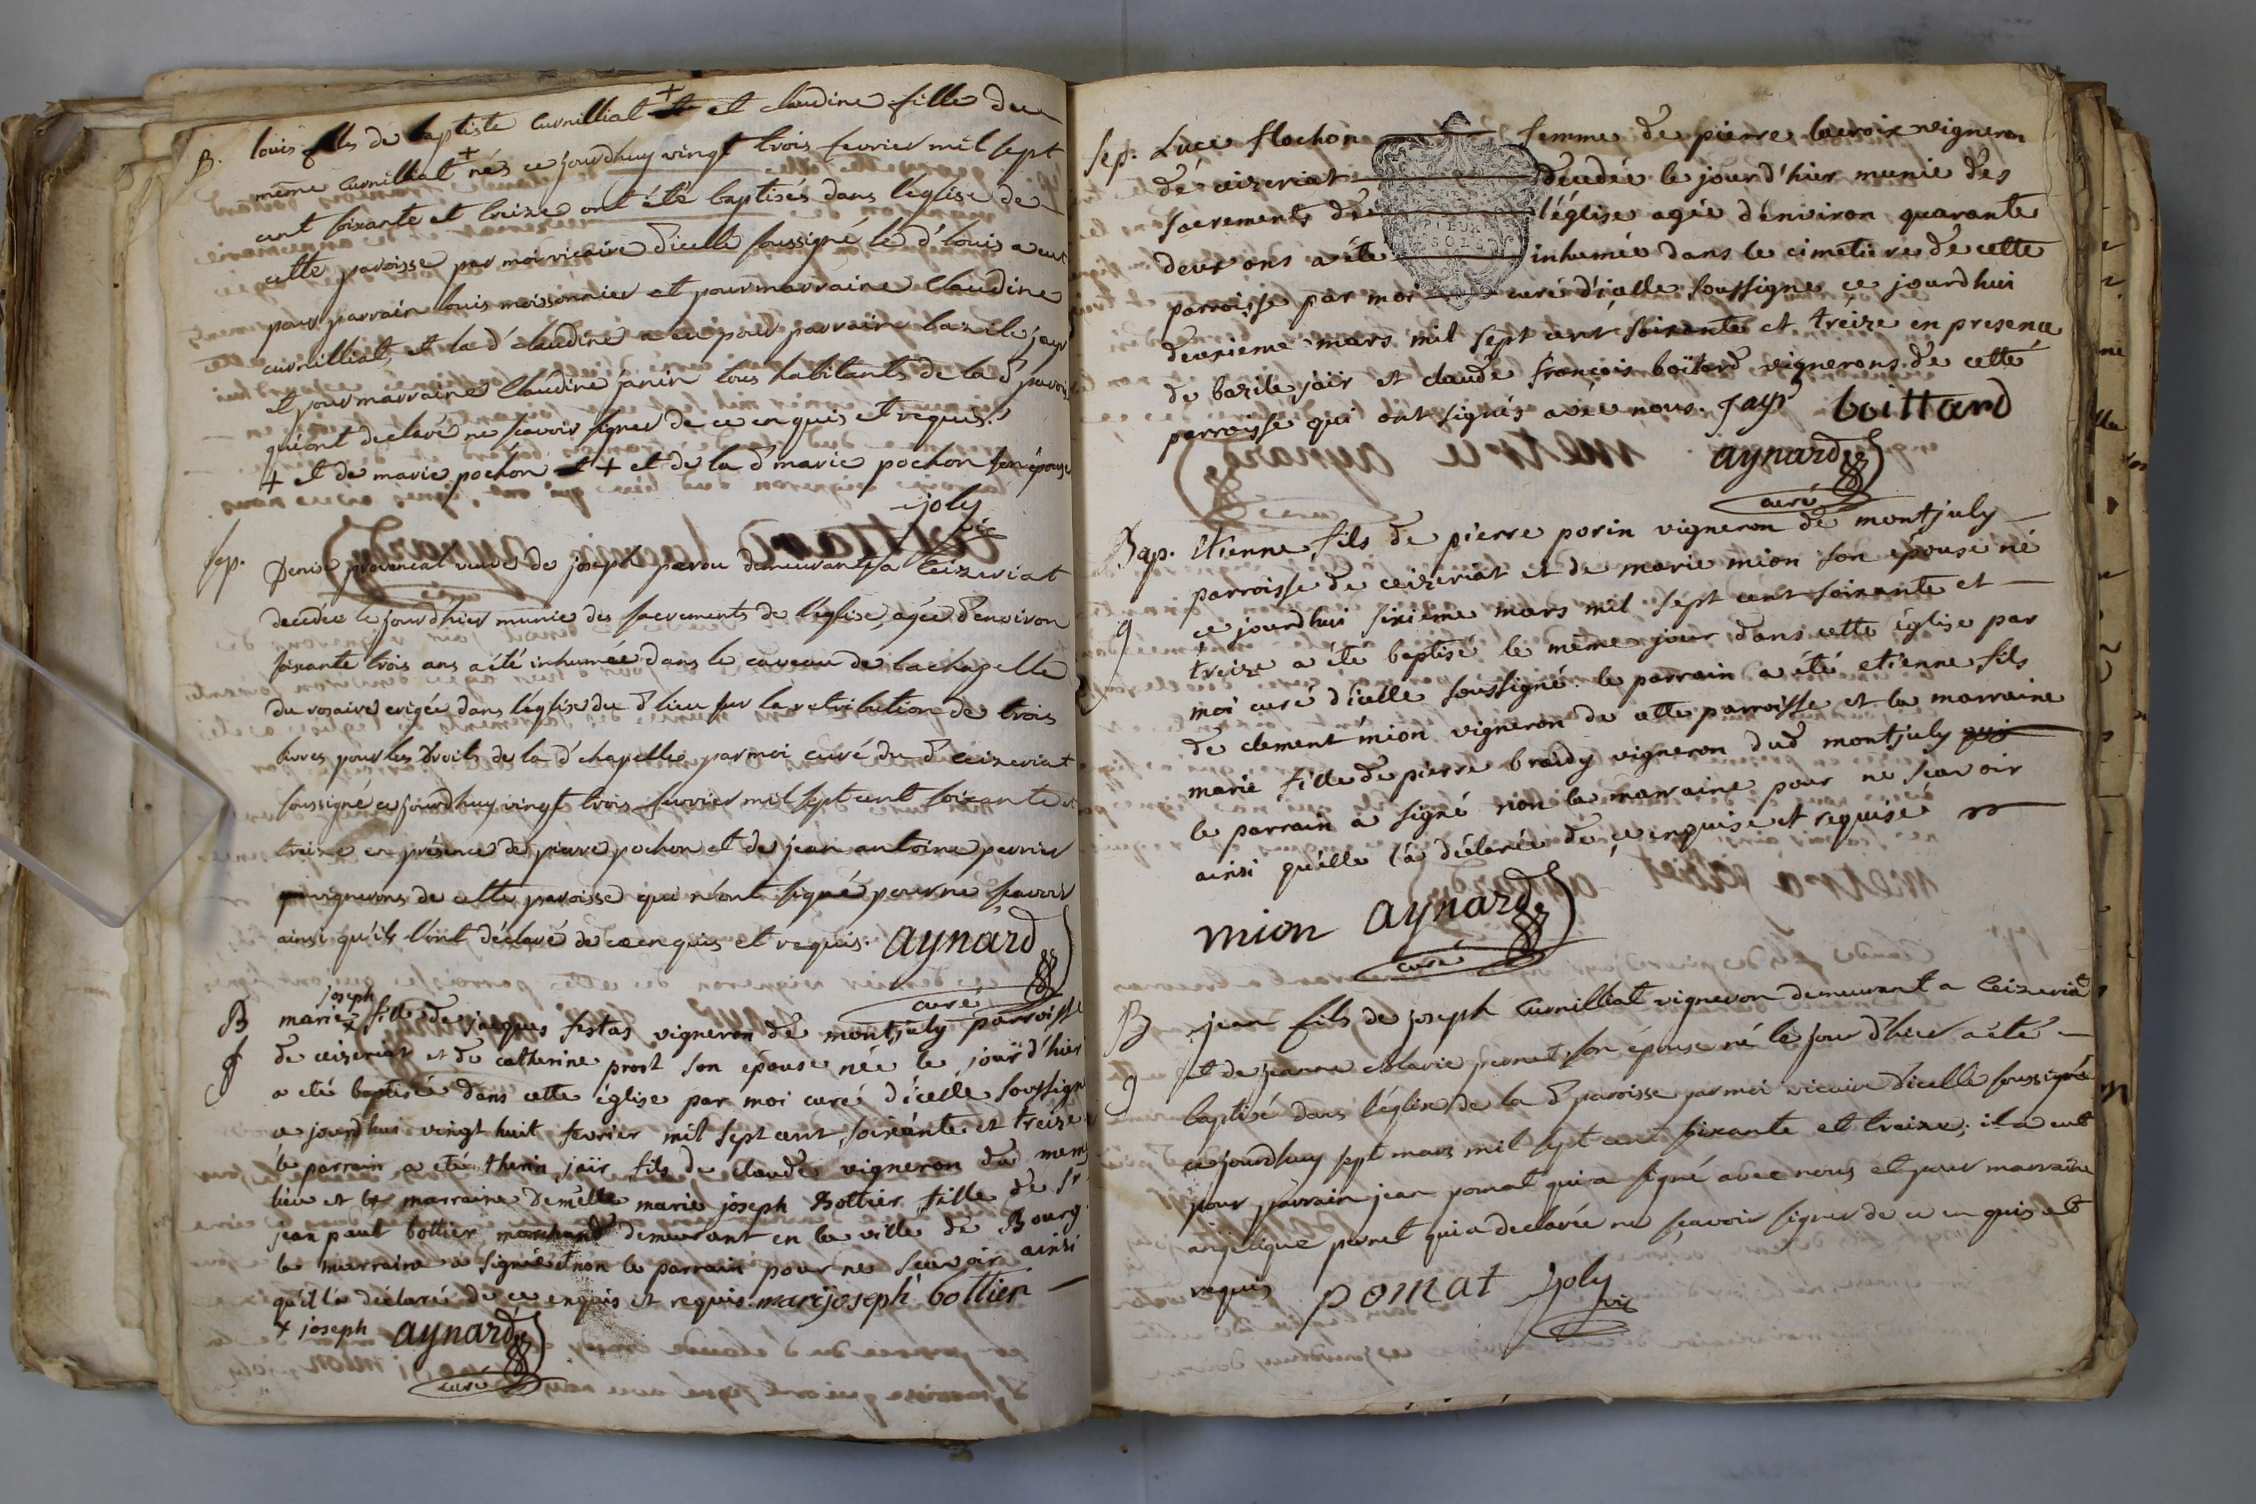 B. louis fils de baptiste curnilliat + et claudine fille du
même curnilliat + nés ce jourdhuy vingt trois fevrier mil sept
cent soixante et treize ont été baptisés dans l'église de
cette paroisse par moi vicaire d'icelle soussigné le d' louis a eut
pour parrain louis moissonnier et pour marraine claudine
curnilliat, et la d' claudine a eu pour parrain bazile jayr
et pour marraine claudine janin tous habitants de la d' paroisse
qui ont declaré ne scavoir signer de ce enquis et requis.
+ et de marie pochon + et de la d' marie pochon son épouse
joly vic
sep. Denise provencal veuve de joseph demeurante a Ceizeriat
decedée le jourdhier munie des sacrements de l'église, agée d'environ
soixante trois ans a été inhumée dans le caveau de la chapelle
du rosaire erigée dans l'église du d' lieu sur la retribution de trois
livres pour les droits de la d' chapelle par moi curé du d' ceizeriat
soussigné ce jourdhuy vingt trois fevrier mil sept cent soixante et
treize en présence de pierre pochon et de jean antoine perrier
vignerons de cette paroisse qui n'ont signé pour ne scavoir
ainsi qu'ils l'ont déclaré de ce enquis et requis. aynard
curé
joseph
B marie + fille de jacques festas vigneron de montjuly parroisse
g de ceizeriat et de catherine prost son epouse née le jour d'hier
a eté baptisée dans cette église par moi curé d'icelle soussigné
ce jourdhui vingt huit fevrier mil sept cent soixante et treize
le parrain a eté jaïr fils de claude vigneron dud meme
lieu et la marraine demelle marie joseph Bottier fille de sr
jean paul bottier marchand demeurant en la ville de Bourg.
la marraine a signée et non le parrain pour ne scavoir ainsi
qu'il l'a déclaré de ce enquis et requis. marijoseph bottier
+ joseph aynard
curé
sep. Luce flochon femme de pierre lacroix vigneron
de ceizeriat decedée le jourd'hier munie des
sacrements de l'église agée d'environ quarante
deux ans a été inhumée dans le cimetiere de cette
parroisse par moi curé d'icelle soussigné ce jourdhui
deuxieme mars mil sept cent soixante et treize en presence
de bazile jaïr et claude françois boïtard vignerons de cette
parroisse qui ont signés avec nous. jayr boittard
aynard
curé
Bap. etienne fils de pierre porin vigneron de montjuly
parroisse de ceizeriat et de marie mion son épouse né
g ce jourdhui sixieme mars mil sept cent soixante et
treize a été baptisé le même jour dans cette église par
moi curé d'icelle soussigné. le parrain a été etienne fils
de clement mion vigneron de cette parroisse et la marraine
marie fille de pierre brendy vigneron dud montjuly qui
le parrain a signé non la marraine pour ne scavoir
ainsi qu'elle l'a déclarée de ce enquise et requise
mion aynard
curé
B jean fils de joseph Curnilliat vigneron demeurant a Ceizeriat
et de jeanne Marie pernet son épouse né le jour d'hier a été
g baptisé dans l'église de la d' paroisse par moi vicaire d'icelle soussigné
ce jourdhuy sept mars mil sept cent soixante et treize; il a eut
pour parrain jean pomat qui a signé avec nous et pour marraine
anjelique pernet qui a declarée ne sçavoir signer de ce en quis et
requis pomat Joly
vic